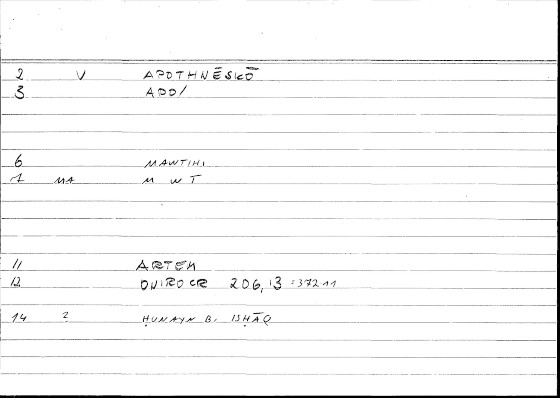 2 V APOTHNĒSKŌ
3 ADD/
6 MAWTIHI
7 MA M W T
11 ARTEM
12 ONIROCR 206,13 = 372 11
14 2 ḤUNAYN B. ISḤĀQ